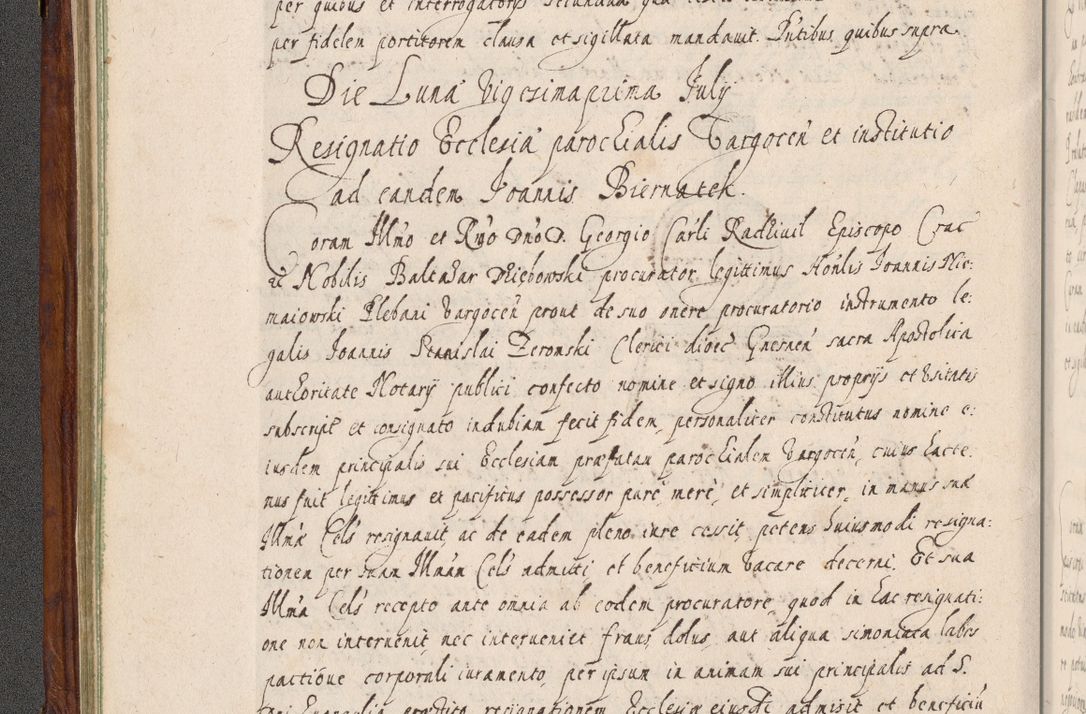 per quibus et interrogatorys secundum
per fidelem portitorem clausa et sigillata mandauit. Pntibus quibus supra
Die Luna Vigesimaprima July
Resignatio Ecclesiæ parochialis Vargocen et institutio
ad eandem Joannis Biernatek.
Coram Illmo et Rmo Dno D. Georgio Carli Radziuil Episcopo Crac
etc Nobilis Baltazar Dzięborski procurator legittimus Honlis Joannis Nie:
maiowski Plebani Vargocen prout de suo onere procuratorio instrumento le:
galis Joannis Stanislai Zeronski Clerici dioec Gnesnen sacra Apostolica
authoritate Notary publici confecto nomine et signo illius proprys et Vsitatis
subscript et consignato indubiam fecit fidem, personaliter constitutus nomine e:
iusdem principalis sui Ecclesiam præfatam parochialem Vargocen, cuius hacte:
nus fuit legittimus et pacificus possessor pure, mere, et simpliciter, in manus suæ
Illmæ Cels resignauit ac de eadem pleno iure cessit, petens huiusmodi resigna:
tionem per suam Illmam Cels admitti et beneficium Vacare decerni. Et sua
Illma Cels recepto ante omnia ab eodem procuratore, quod in hac resignati:
one non interuenit, nec interueniet fraus, dolus, aut aliqua simoniaca labes
pactione corporali iuramento, per ipsum in animam sui principalis ad S.
Dei Euangelia præstito resignationem Ecclesiæ eiusdē admisit et beneficiū